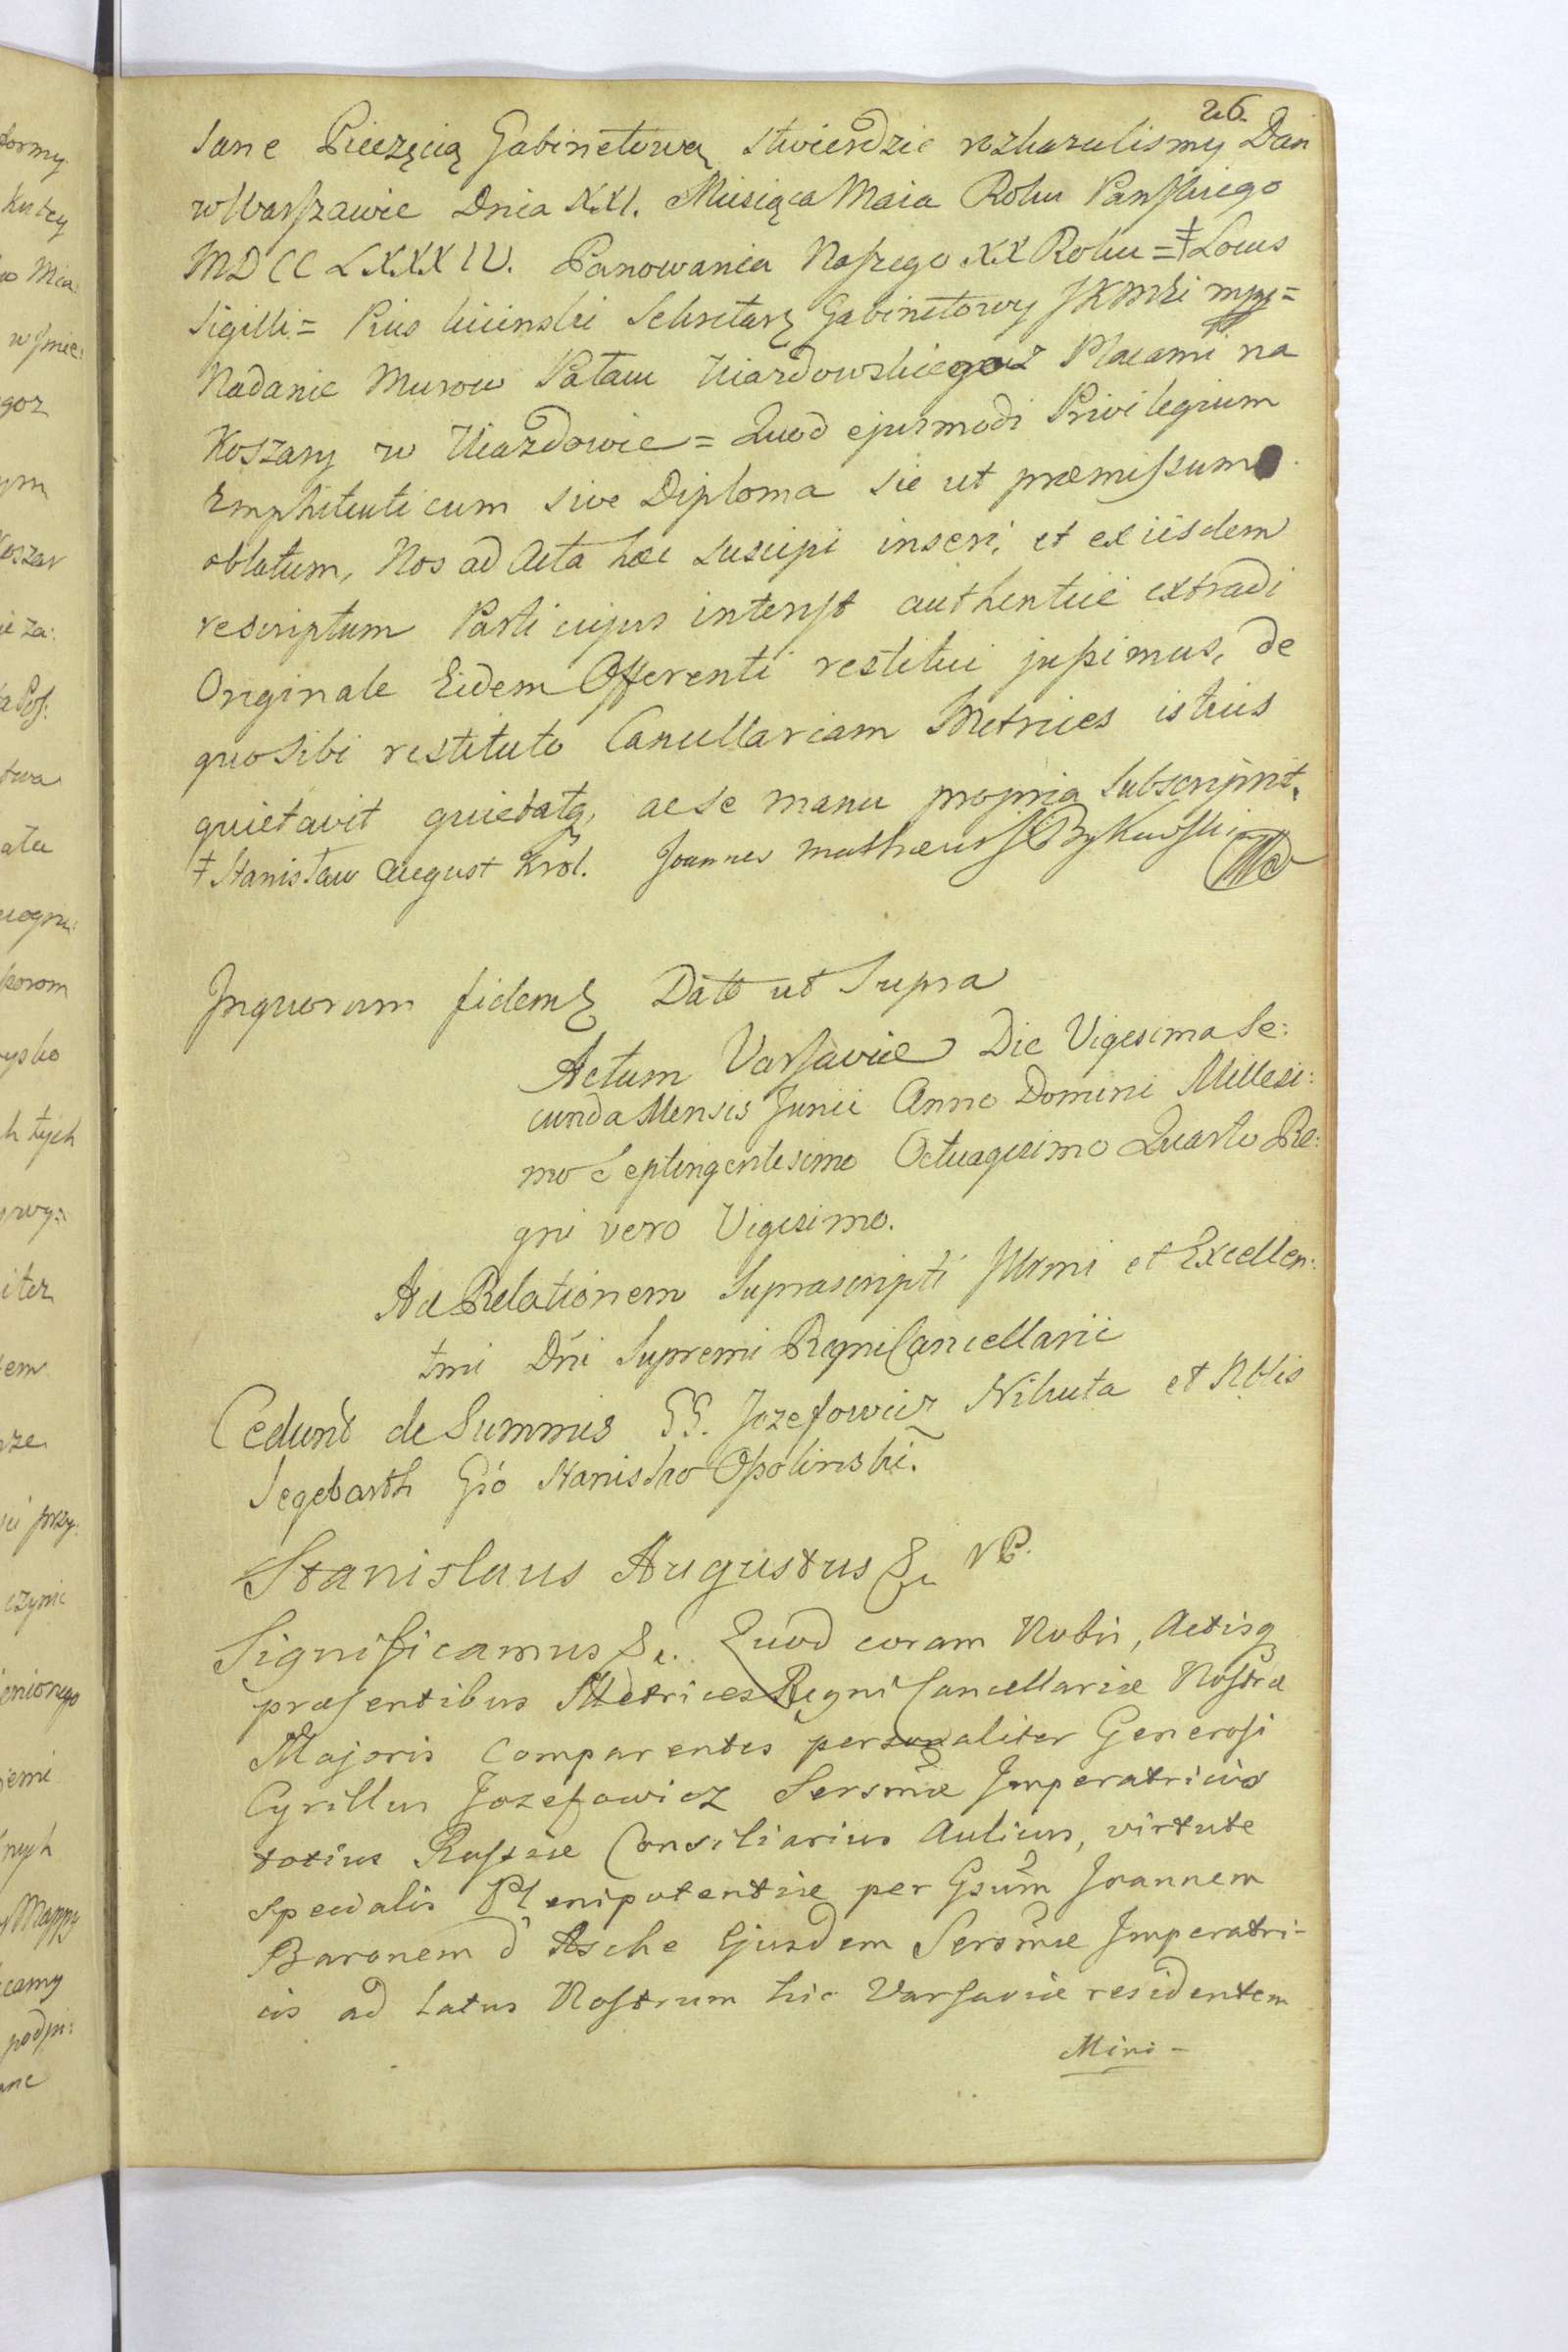 26.
sane Pieczęcią Gabinetową stwierdzić rozkazalismy Dan
w Warszawie Dnia XXI. Miesiąca Maia Roku Panskiego
MDCCLXXXIV. Panowania Naszego XX Roku = ‡ Locus
Sigilli = Pius Kicinski Sekretarz Gabinetowy JKMści mpp =
Nadanie Murow Pałacu Uiazdowskiego z Placami na
Koszary w Uiazdowie = Quod ejusmodi Privilegium
Emphiteuticum sive Diploma sic ut præmissum
oblatum, Nos ad Acta hæc suscipi inseri, et ex iisdem
rescriptum Parti cujus interest authentice extradi
Originale Eidem Offerenti restitui jussimus, de
quo Sibi restituto Cancellariam Metrices istius
quietavit quietatq, ac se manu propria subscripsit.
† Stanisław August Król. Joannes Mathæus Bykowski
In quorum fidem Dato ut Supra
Actum Varsaviæ Die Vigesima Se:
cunda Mensis Junii Anno Domini Millesi:
mo Septingentesimo Octuagesimo Quarto Re:
gni vero Vigesimo.
Ad Relationem Suprascripti Illrmi et Excellen:
tmi Dńi Supremi Regni Cancellarii
Cedunt de Summis GG. Jozefowicz Nikuta et Nblis
Segebarth Gło Stanisko Opolinski.
Stanislaus Augustus &c
Significamus &c. Quod coram Nobis, Actisq
præsentibus Metrices Regni Cancellariæ Nostræ
Majoris Comparentes personaliter Generosi
Cyrillus Jozefowicz Sersmæ Imperatricis
totius Russiæ Consiliarius Aulicus, virtute
specialis Plenipotentiæ per Gsum Joannem
Baronem d' Asche Ejusdem Sersmæ Imperatri-
cis ad Latus Nostrum hic Varsaviæ residentem
Mini-